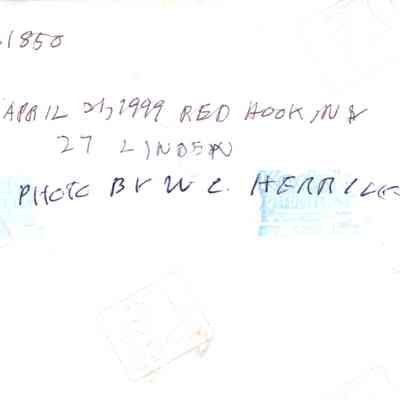 .1850
APRIL 21, 1999 RED HOOK, NY
27 LINDEN
PHOTO BY W. C. HERRICK